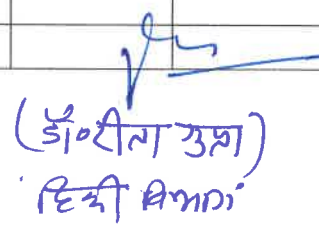 (डॉ॰रीता गुप्ता)
हिन्दी विभाग